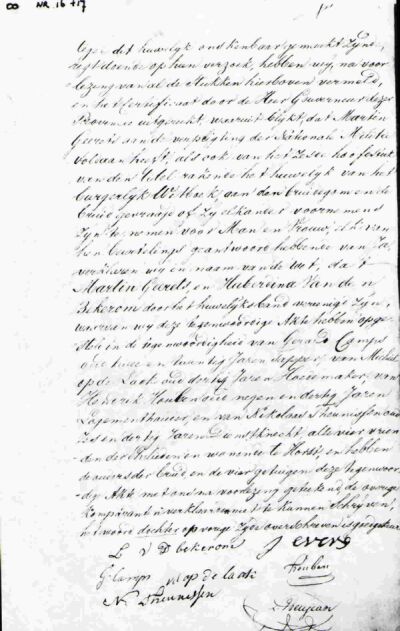 NR. 16+17
dit huwelijk onz kenbaar gemaakt zijne,
regt doende op hun verzoek, hebben wij, na voor
lezing van al de stukken hierboven vermeld,
en het Certificaat door de Heer Gouverneur dezer
Provincie uitgereikt, waaruit blijkt, dat Martin
Geurts aan de verpligting der Nationale Militie
voldaan heeft, als ook van het zesde hoofdstuk
van den titel rakende het huwelijk van het
burgerlijk Wetboek, aan den bruidegom en de
bruid gevraagd of zij elkander voornemens
zijn te nemen voor Man en Vrouw, elk van
hen beurtelings geantwoord hebbende van Ja
verklaren wij en naam van de wet, dat
Martin Geurts, en Huberdina Van den
Bekerom door het huwelijksband vereenigd zyn,
waarvan wij deze tegenwoordige Akte hebben opge-
steld in de tegenwoordigheid van Gerard Camps
oud twee en twintig Jaren schepper, van Michiel
op de Laak oud dertig Jaren Hoedemaker, van
Henderik Heuben oud negen en dertig Jaren
Logementhouder, en van Nikolaas Theunissen oud
zes en dertig Jaren Dienstknecht, alle vier vrien
den der Echtelieden en wonende te Horst, en hebben
de ouders der bruid en de vier getuigen deze tegenwoor
dige Akte met ons na voorlezing getekend, de overige
komparanten verklaarden niet te kunnen schrijven,
het woord dochter op vorige zijde overschreven is goedgekeurd
L V D bekerom J evers
G. Camps M op de laak Heuben
N Theunissen